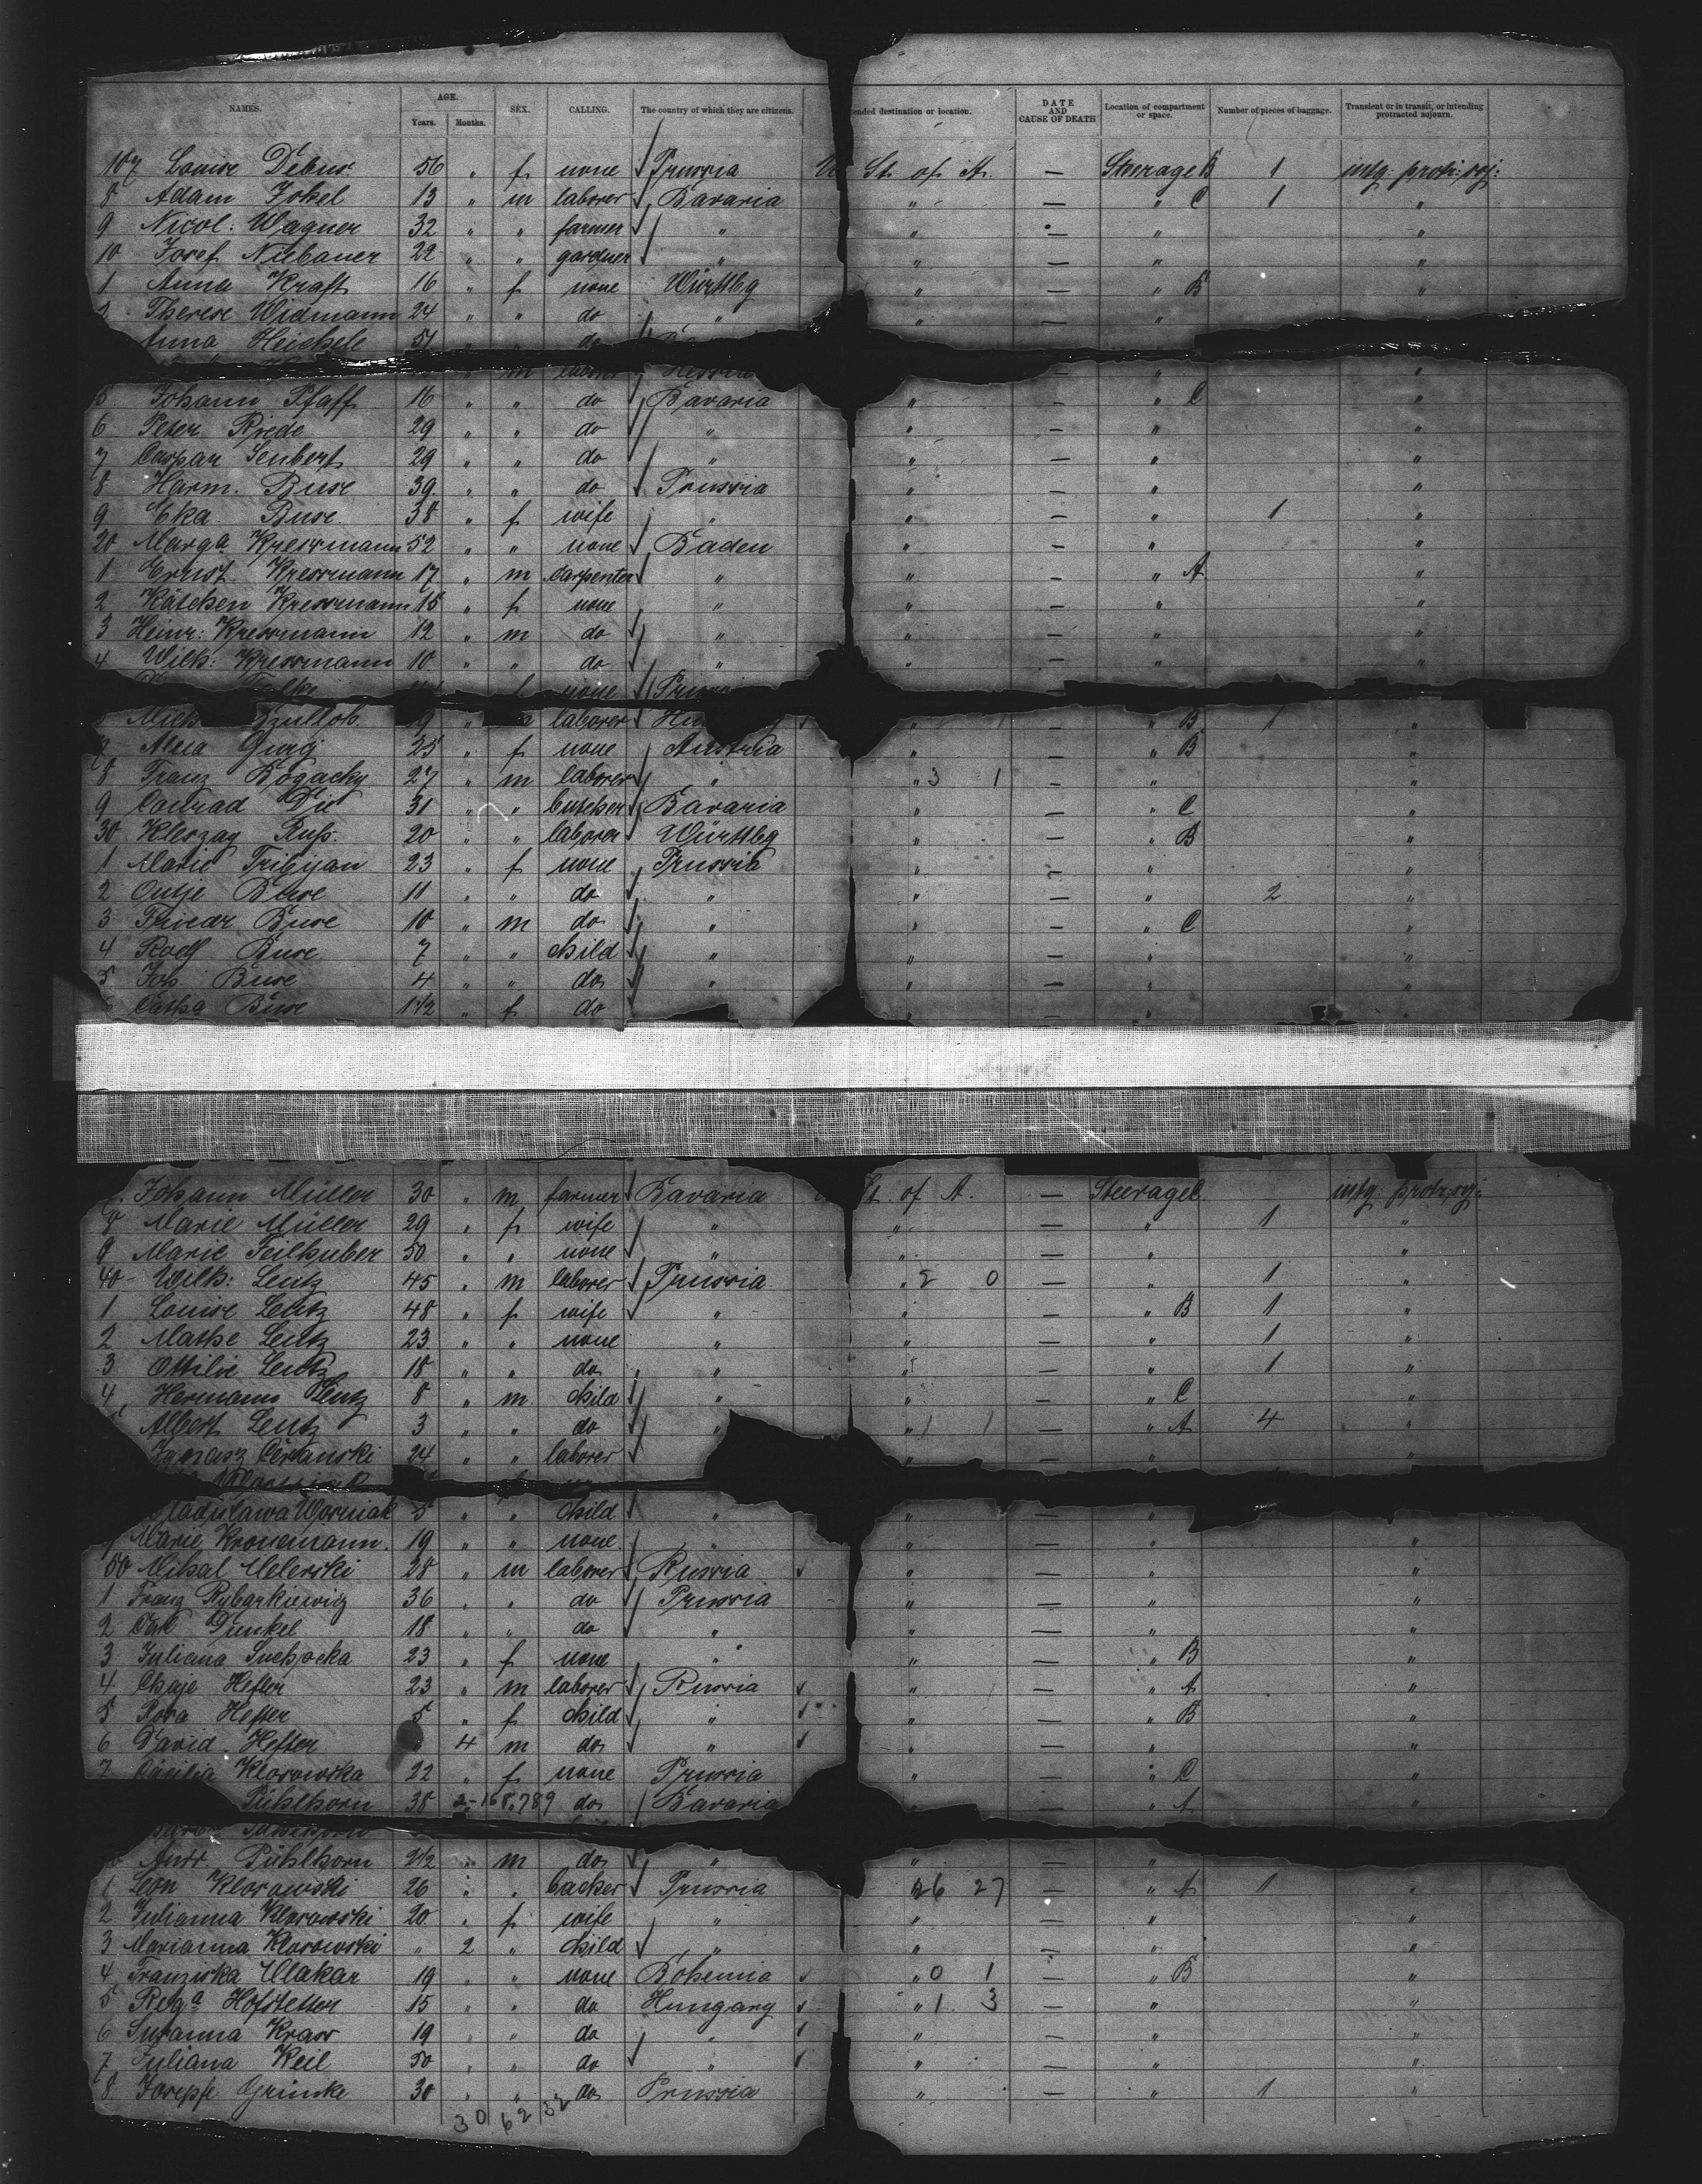 NAMES. AGE. SEX. CALLING. The country of which they are citizens. ended destination or location. DATE AND CAUSE OF DEATH Location of compartment or space. Number of pieces of baggage. Transient or in transit, or intending protracted sojourn.
Years. Months.
107 Louise Debus 56 " f none Prussia U St. of A. — Steerage B 1 intg: protr: soj:
8 Adam Jokel 13 " m laborer Bavaria " — " C 1 "
9 Nicol: Wagner 32 " " farmer " " — " "
10 Josef Niebauer 22 " " gardner " " — " "
1 Anna Kraft 16 " f none Württbg " — " B "
2 Therese Widmann 24 " " do " " — "
Anna Heichele 51 " " do
m laborer Hessia — " "
5 Johann Pfaff 16 " " do Bavaria " — " C "
6 Peter Riede 29 " " do " " — " "
7 Caspar Seubert 29 " " do " " — " "
8 Harm. Buse 39 " " do Prussia " — " "
9 Eka Buse 38 " f wife " " — " 1 "
20 Marga Kressmann 52 " " none Baden " — " "
1 Ernst Kressmann 17 " m carpenter " " — " A "
2 Kätchen Kressmann 15 " f none " " — " "
3 Heinr: Kressmann 12 " m do " " — " "
4 Wilh: Kressmann 10 " " do " " — " "
f none
laborer — " B 1 "
25 " f none Austria " — " B "
8 Franz Bogacky 27 " m laborer " " 3 1 — " "
9 Conrad 31 " " butcher Bavaria " — " C "
30 20 " " laborer Württbg " — " B "
1 Marie 23 " f none Prussia " — " "
2 Antje Buse 11 " " do " " — " 2 "
3 Friedr Buse 10 " m do " " — " C "
4 Roelf Buse 7 " " child " " — " "
5 Joh. Buse 4 " " do " " — " "
6 Catha Buse 1 1/2 " f do " — " "
Johann Müller 30 " m farmer Bavaria St. of A. — Steerage C intg: protr: soj:
8 Marie Müller 29 " f wife " " — " 1 "
9 Marie Feilhuber 50 " " none " " — " "
40 Wilh: Lentz 45 " m laborer Prussia " 2 0 — " 1 "
1 Louise Lentz 48 " f wife " " — " B 1 "
2 Mathe Lentz 23 " " none " " — " 1 "
3 Ottilie Lentz 18 " " do " " — " 1 "
4 Hermann Lentz 8 " m child " " — " C "
Albert Lentz 3 " " do " " 1 1 — " A 4 "
24 " " laborer " — " "
Wladislawa Worniak 5 " " child " " — "
9 Marie Kronemann 19 " " none " " — " "
50 Mihal 28 " m laborer Russia " — " "
1 Franz Rybarkiewicz 36 " " do Prussia " — " "
2 Carl Dunkel 18 " " do " " — " "
3 Juliana 23 " f none " " — " B "
4 Chaje Hefter 23 " m laborer Russia " — " A "
5 Hefter 5 " f child " " — " B "
6 David Hefter " 4 m do " " — " "
7 Cäcilia Klosowska 22 " f none Prussia " — " C "
Pühlhorn 38 2-168789 do Bavaria " — " A "
Andr. Pühlhorn 2 1/2 " m do " " — " "
1 Leon Klosowski 26 " " backer Prussia " 26 27 — " A 1 "
2 Julianna Klosowski 20 " f wife " " — " "
3 Marianna Klosowski " 2 " child " " — " "
4 Franziska Vlakar 19 " " none Bohemia " 0 1 — " B "
5 Rega Hofstetter 15 " " do Hungary " 1 3 — " "
6 Susanna Krass 19 " " do " " — " "
7 Juliana Keil 50 " " do " " — " "
8 Josepfe Grimke 30 " " do Prussia " — " 1 "
30 62 32